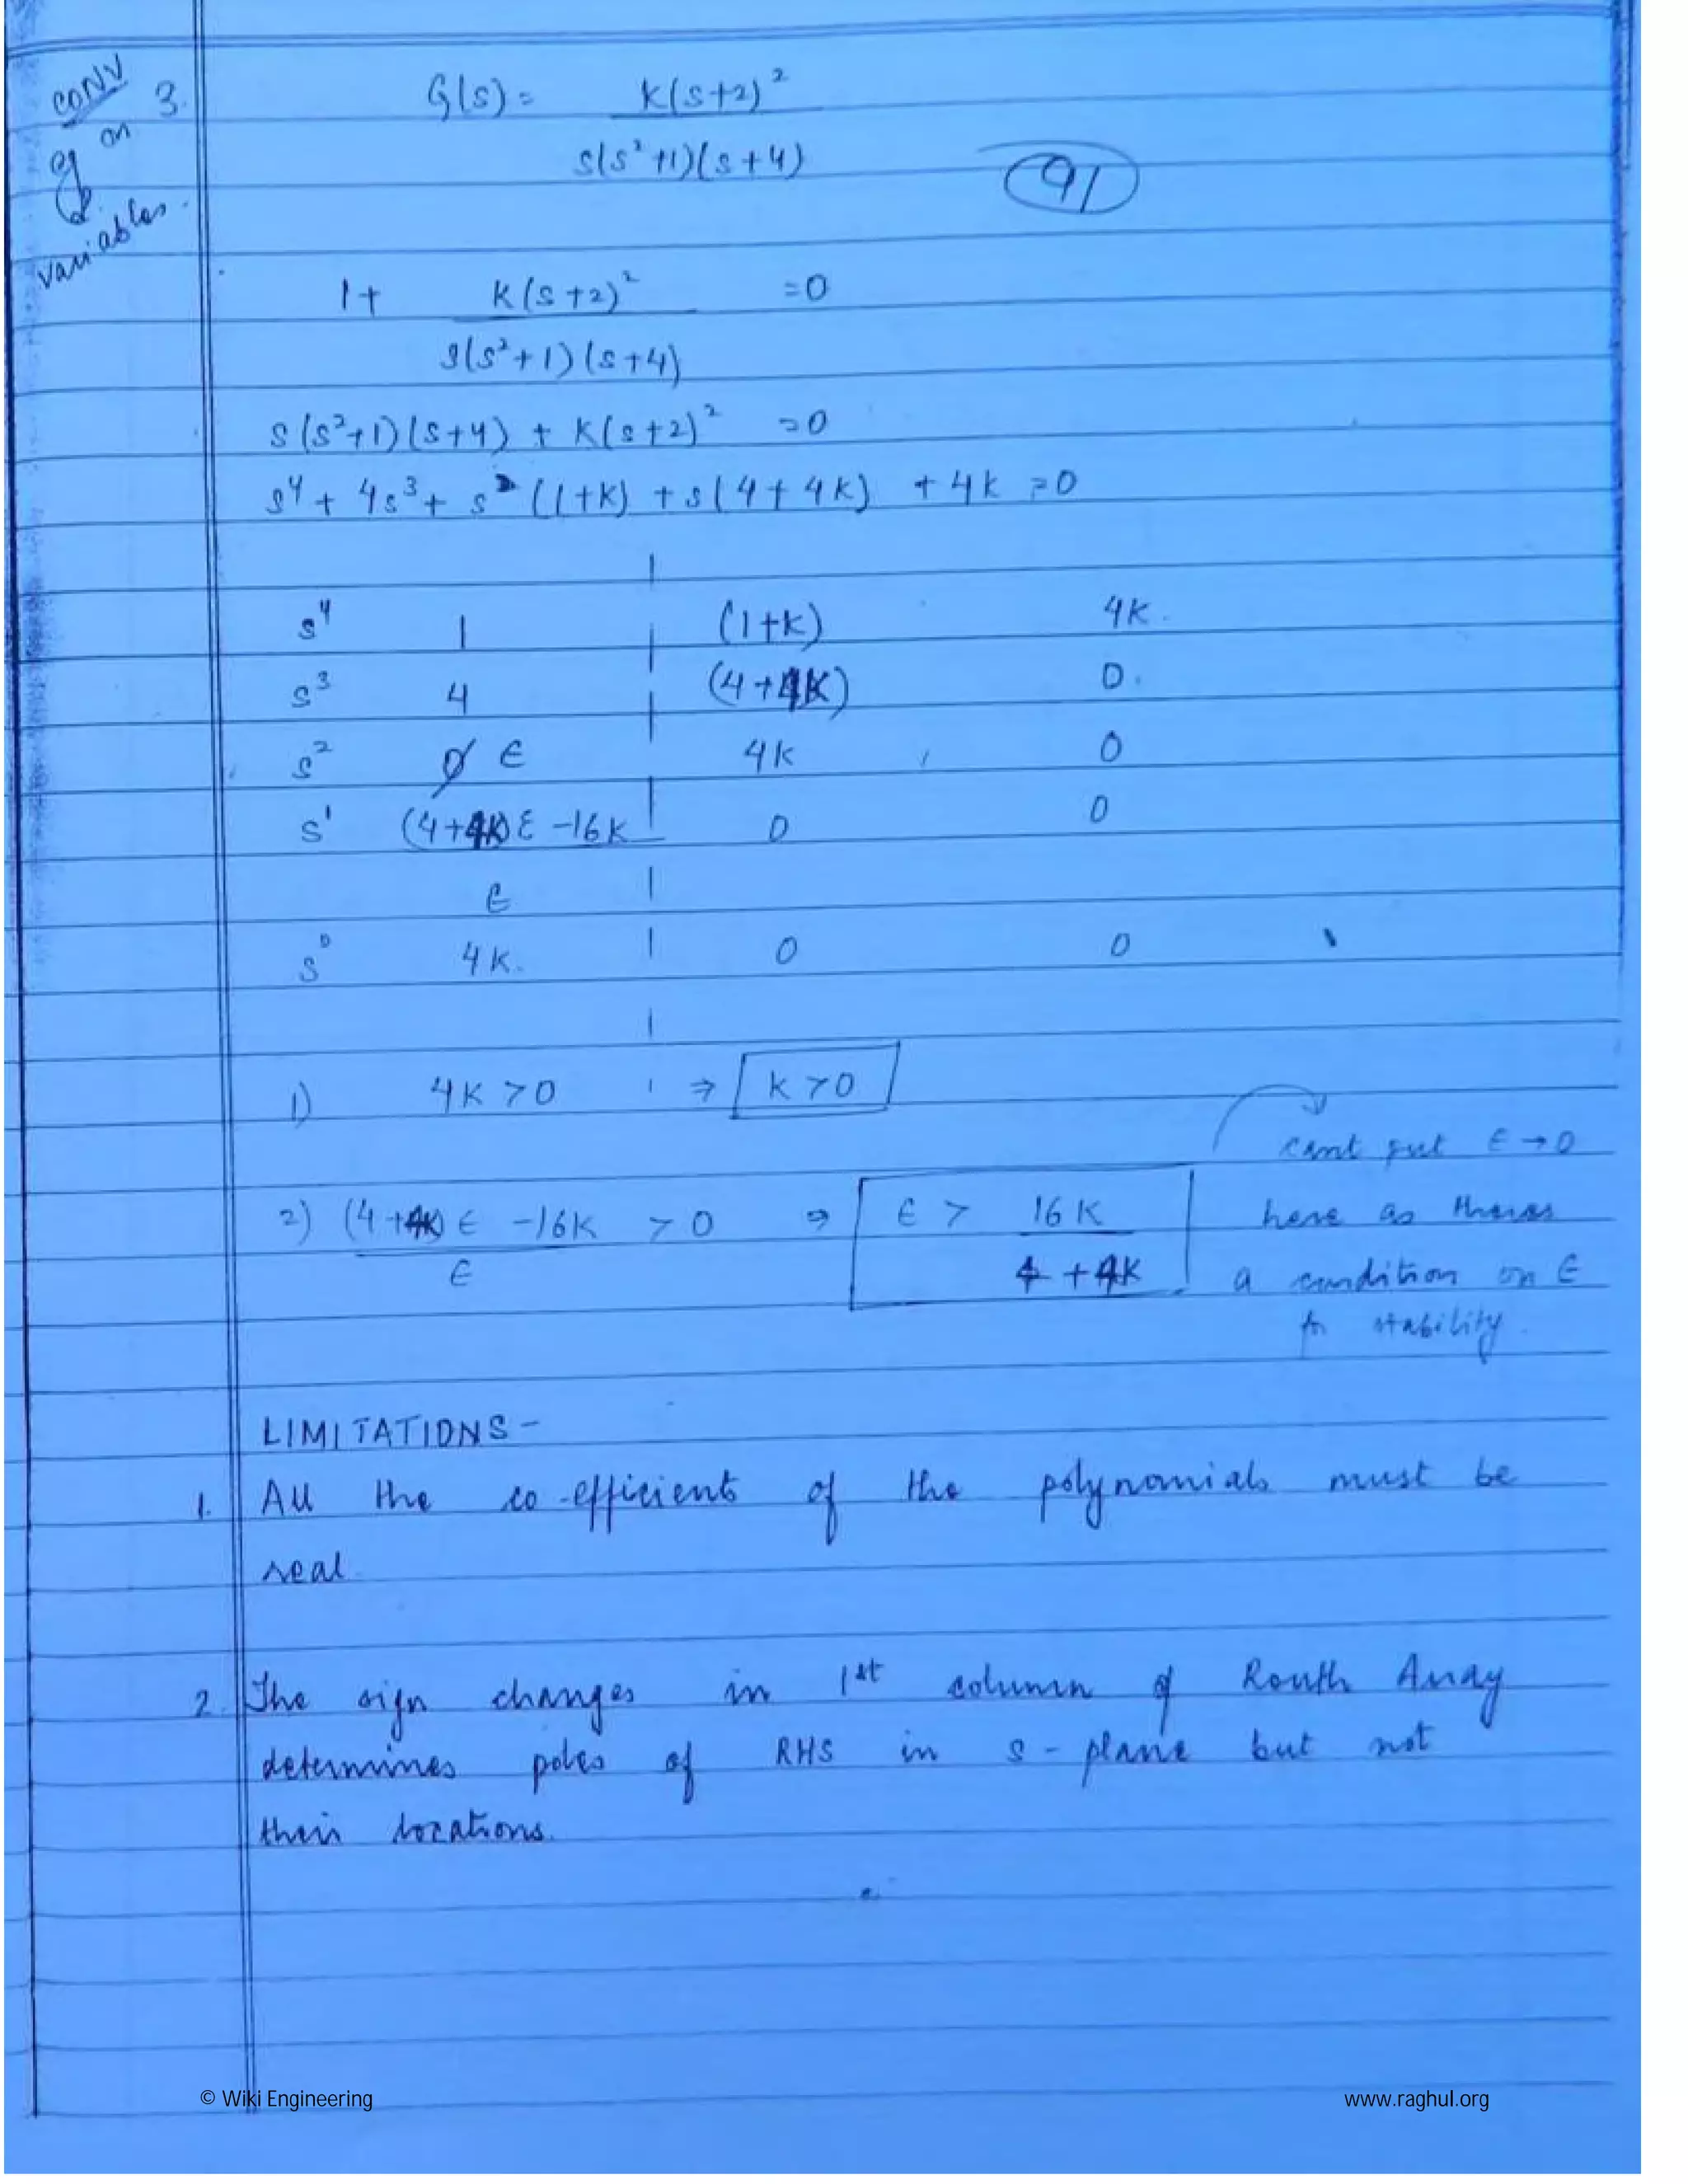 CONV
on
variables.
3. G(s) = K(s+2)²
s(s²+1)(s+4)
91
1+ K(s+2)² =0
s(s²+1)(s+4)
s(s²+1)(s+4) + K(s+2)² =0
s⁴ + 4s³ + s² (1+K) + s(4+4K) + 4K =0
s⁴ 1 (1+K) 4K.
s³ 4 (4+4K) 0.
s² 0 ϵ 4K 0
s¹ (4+4K)ϵ -16K 0 0
ϵ
s⁰ 4K. 0 0
1) 4K >0 ⇒ K >0
cant put ϵ → 0
2) (4+4K)ϵ -16K > 0 ⇒ ϵ > 16K here as theres
ϵ 4 +4K a condition on ϵ
for stability.
LIMITATIONS -
1. All the co-efficients of the polynomials must be
real.
2. The sign changes in 1st column of Routh Array
determines poles of RHS in s-plane but not
their locations.
© Wiki Engineering www.raghul.org